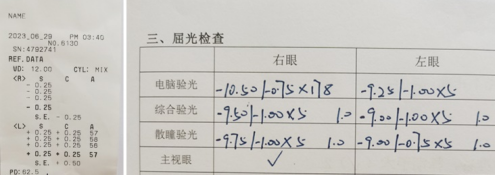 NAME
2023_06_29 PM 03:40
NO.6130
SN:4792741
REF.DATA
VD: 12.00 CYL: MIX
<R> S C A
- 0.25
- 0.25
- 0.25
- 0.25
S.E. - 0.25
<L> S C A
+ 0.25 + 0.25 57
+ 0.25 + 0.25 58
+ 0.25 + 0.25 56
+ 0.25 + 0.25 57
S.E. + 0.50
PD:62.5
三、屈光检查
右眼 左眼
电脑验光 -10.50/-0.75×178 -9.25/-1.00×5
综合验光 -9.50/-1.00×5 1.0 -9.00/-1.00×5 1.0
散瞳验光 -9.75/-1.00×5 1.0 -9.00/-0.75×5 1.0
主视眼 ✓